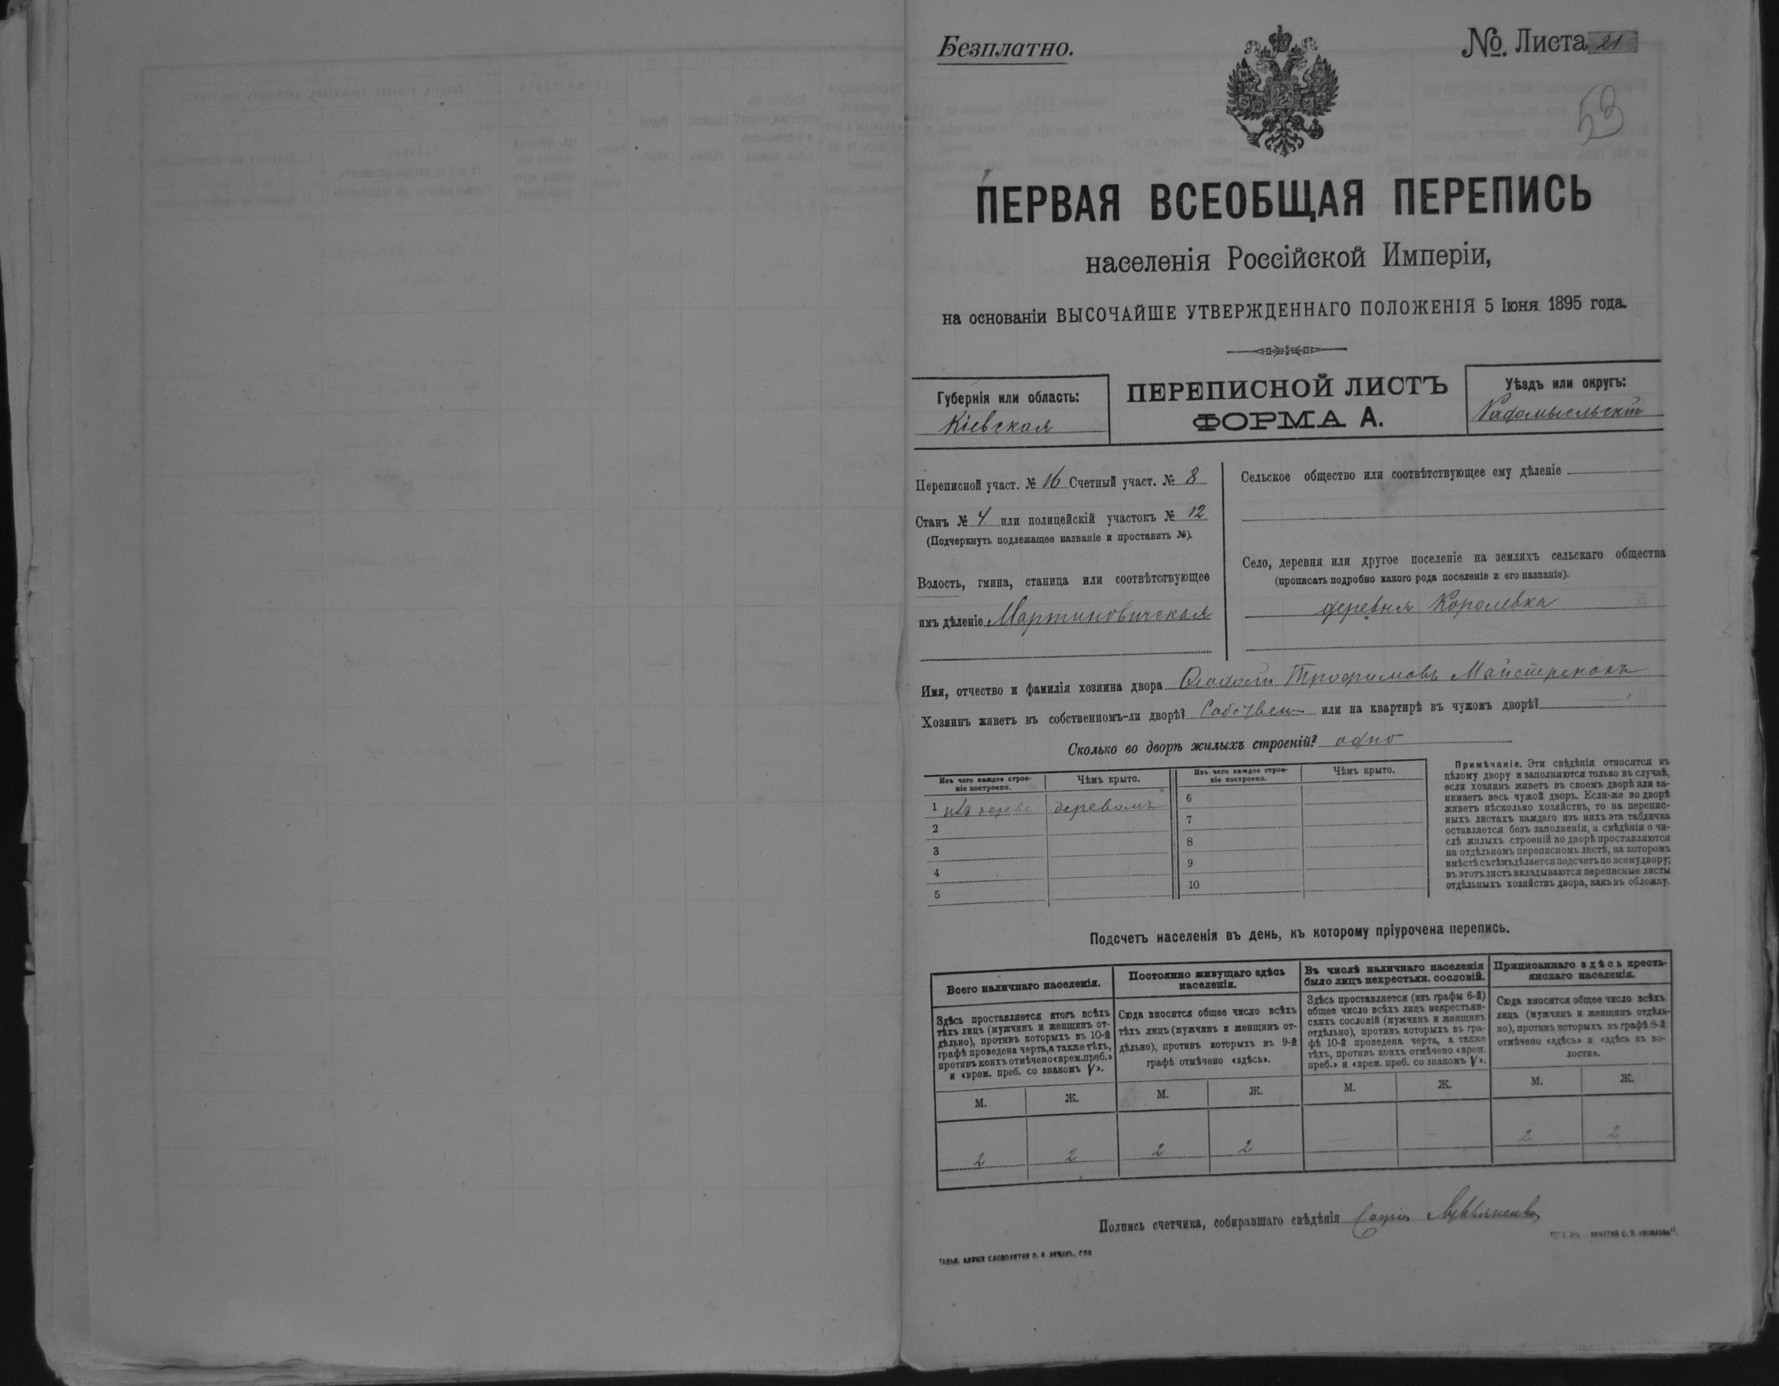 Безплатно.
№ Листа 21
53
ПЕРВАЯ ВСЕОБЩАЯ ПЕРЕПИСЬ
населенія Россійской Имперіи,
на основаніи ВЫСОЧАЙШЕ УТВЕРЖДЕННАГО ПОЛОЖЕНІЯ 5 Іюня 1895 года.
Губернія или область:
Кіевская
ПЕРЕПИСНОЙ ЛИСТЪ
ФОРМА А.
Уѣздъ или округъ:
Радомысльскій
Переписной участ. № 16 Счетный участ. № 8
Станъ № 4 или полицейскій участокъ № 12
(Подчеркнуть подлежащее названіе и проставить №).
Волость, гмина, станица или соотвѣтствующее
имъ дѣленіе Мартиновичская
Сельское общество или соотвѣтствующее ему дѣленіе
Село, деревня или другое поселеніе на земляхъ сельскаго общества
(прописать подробно какого рода поселеніе и его названіе).
деревня Королевка
Имя, отчество и фамилія хозяина двора Трофимовъ Майстренокъ
Хозяинъ живетъ въ собственномъ-ли дворѣ? или на квартирѣ въ чужомъ дворѣ?
Сколько во дворѣ жилыхъ строеній? одно
Изъ чего каждое строе-
ніе построено.
Чѣмъ крыто.
Изъ чего каждое строе-
ніе построено.
Чѣмъ крыто.
1 изъ дерева деревомъ
2
3
4
5
6
7
8
9
10
Примѣчаніе. Эти свѣдѣнія относятся къ
цѣлому двору и заполняются только въ случаѣ,
если хозяинъ живетъ въ своемъ дворѣ или за-
нимаетъ весь чужой дворъ. Если-же во дворѣ
живетъ нѣсколько хозяйствъ, то на перепис-
ныхъ листахъ каждаго изъ нихъ эта табличка
оставляется безъ заполненія, а свѣдѣнія о чи-
слѣ жилыхъ строеній во дворѣ проставляются
на отдѣльномъ переписномъ листѣ, на которомъ
вмѣстѣ съ тѣмъ дѣлается подсчетъ по всему двору;
въ этотъ листъ вкладываются переписные листы
отдѣльныхъ хозяйствъ двора, какъ въ обложку.
Подсчетъ населенія въ день, къ которому пріурочена перепись.
Всего наличнаго населенія.
Здѣсь проставляется итогъ всѣхъ
тѣхъ лицъ (мужчинъ и женщинъ от-
дѣльно), противъ которыхъ въ 10-й
графѣ проведена черта, а также тѣхъ,
противъ коихъ отмѣчено «врем. преб.»
и «врем. преб. со знакомъ V».
М. Ж.
2 2
Постоянно живущаго здѣсь
населенія.
Сюда вносится общее число всѣхъ
тѣхъ лицъ (мужчинъ и женщинъ от-
дѣльно), противъ которыхъ въ 9-й
графѣ отмѣчено «здѣсь».
М. Ж.
2 2
Въ числѣ наличнаго населенія
было лицъ некрестьян. сословій.
Здѣсь проставляется (изъ графы 6-й)
общее число всѣхъ лицъ некрестьян-
скихъ сословій (мужчинъ и женщинъ
отдѣльно), противъ которыхъ въ гра-
фѣ 10-й проведена черта, а также
тѣхъ, противъ коихъ отмѣчено «врем.
преб.» и «врем. преб. со знакомъ V».
М. Ж.
— —
Приписаннаго здѣсь кресть-
янскаго населенія.
Сюда вносится общее число всѣхъ
лицъ (мужчинъ и женщинъ отдѣль-
но), противъ которыхъ въ графѣ 8-й
отмѣчено «здѣсь» и «здѣсь къ во-
лости».
М. Ж.
2 2
Подпись счетчика, собиравшаго свѣдѣнія